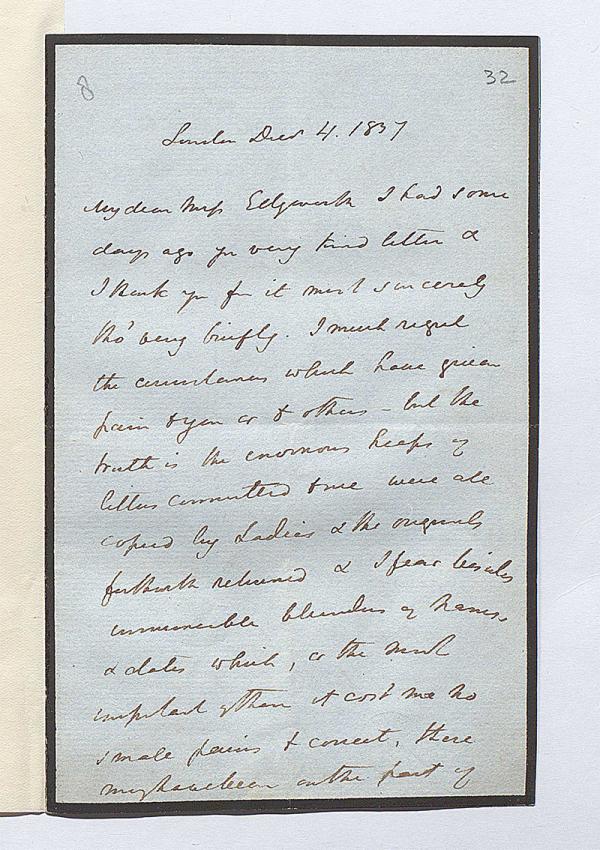 8
32
London Decr 4. 1837
My dear Miss Edgeworth I had some
days ago yr very kind letter &
I thank yr for it most sincerely
tho' very briefly. I much regret
the circumstances which have given
pain to you or to others - but the
truth is the enormous heaps of
letters committed to me were all
copied by Ladies & the originals
forthwith returned & I fear besides
innumerable blunders of names
& dates which, or the most
important of them it cost me no
small pains to correct, there
may have been on the part of